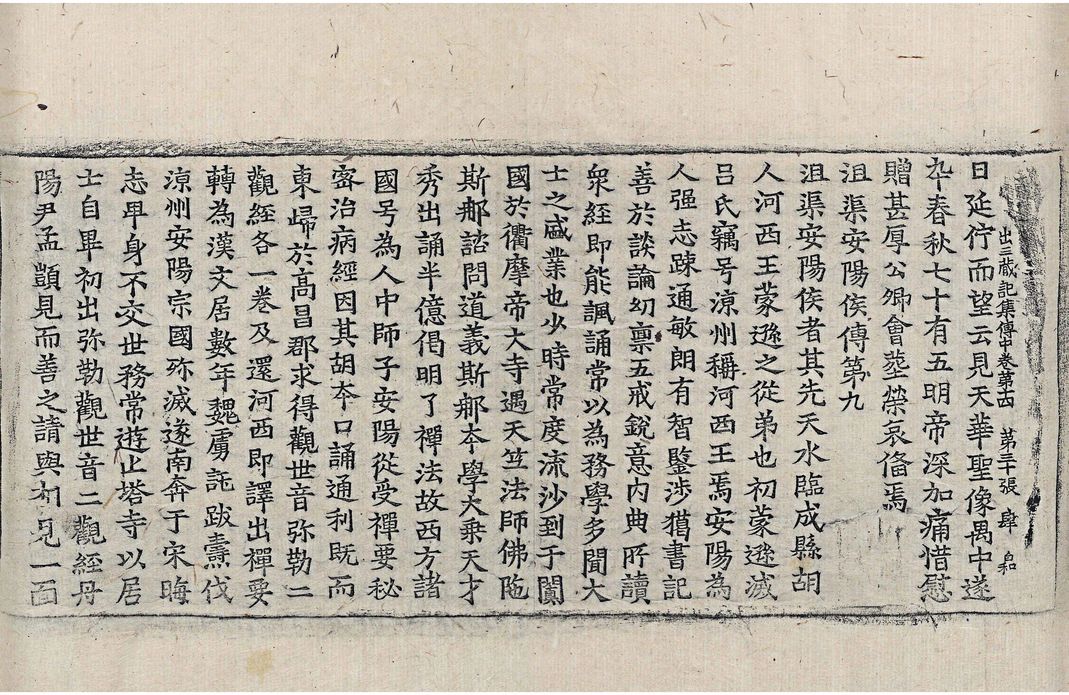 出三藏記集傳中卷第十四 第三十張 肆 自和
日延佇而望云見天華聖像禺中遂
卒春秋七十有五明帝深加痛惜慰
贈甚厚公卿會葬榮哀俻焉
沮渠安陽侯傳第九
沮渠安陽侯者其先天水臨成縣胡
人河西王蒙遜之從弟也初蒙遜滅
呂氏竊号涼州稱河西王焉安陽為
人强志踈通敏朗有智鑒涉獵書記
善於談論幼禀五戒銳意内典所讀
衆經即能諷誦常以為務學多聞大
士之盛業也少時常度流沙到于闐
國於衢摩帝大寺遇天竺法師佛陁
斯那諮問道義斯那本學大乗天才
秀出誦半億偈明了禪法故西方諸
國号為人中師子安陽從受禪要秘
密治病經因其胡本口誦通利既而
東歸於髙昌郡求得觀世音弥勒二
觀經各一卷及還河西即譯出禪要
轉為漢文居數年魏虜託跋燾伐
涼州安陽宗國殄滅遂南奔于宋晦
志卑身不交世務常遊止塔寺以居
士自畢初出弥勒觀世音二觀經丹
陽尹孟顗見而善之請與相見一面